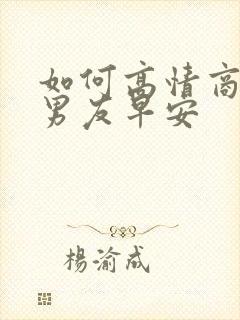 如何高情商
男友早安
楊渝成